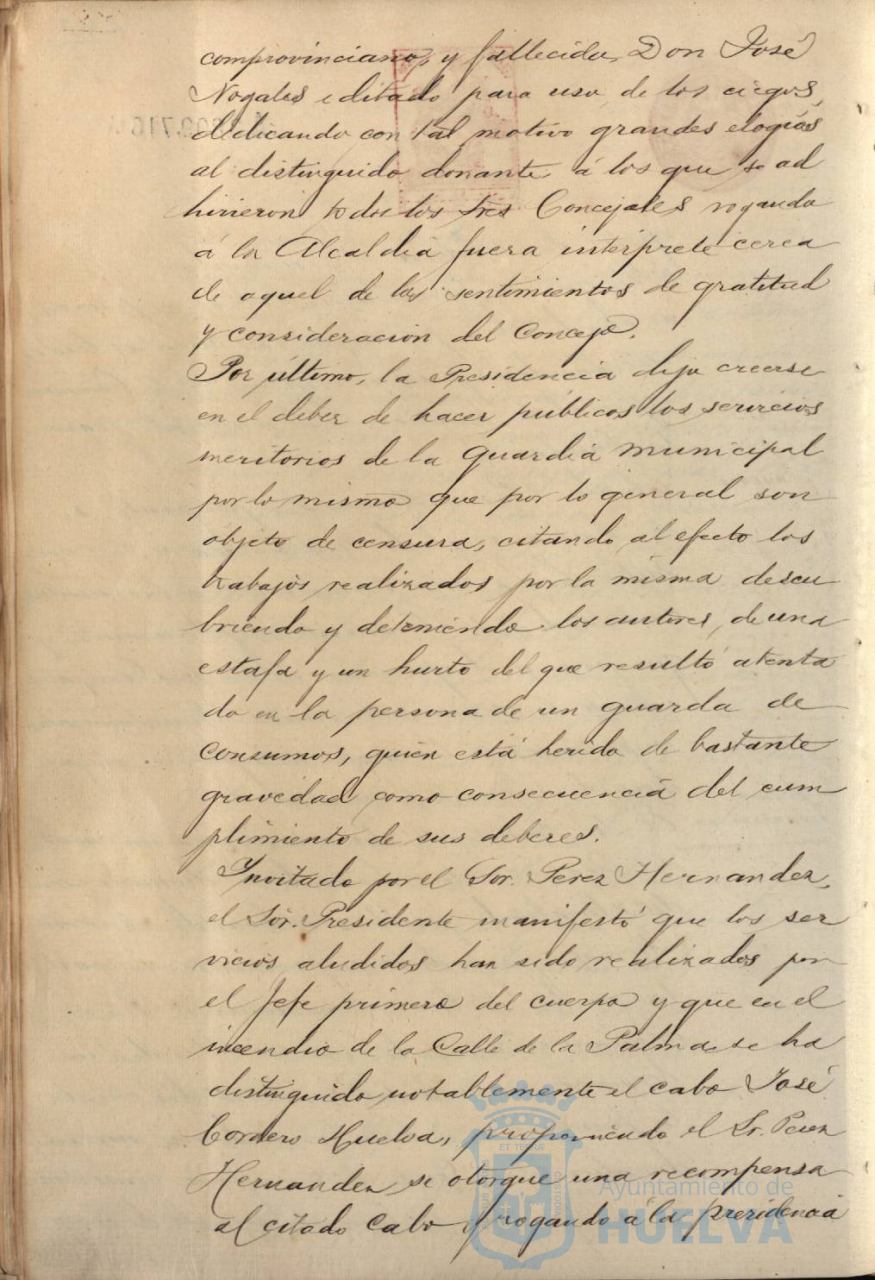 comprovinciano, y fallecido, Don José
Nogales editado para uso de los ciegos,
dedicando con tal motivo grandes elogios
al distinguido donante á los que se ad
hirieron todos los Sres Concejales rogando
á la Alcaldia fuera intérprete cerca
de aquel de los sentimientos de gratitud
y consideracion del Concejo.
Por último, la Presidencia dijo creerse
en el deber de hacer públicos los servicios
meritorios de la Guardia Municipal
por lo mismo que por lo general son
objeto de censura, citando al efecto los
trabajos realizados por la misma descu
briendo y deteniendo los autores, de una
estafa y un hurto del que resultó atenta
do en la persona de un guarda de
consumos, quien está herido de bastante
gravedad como consecuencia del cum
plimiento de sus deberes.
Invitado por el Sor. Perez Hernandez,
el Sor. Presidente manifestó que los ser
vicios aludidos han sido realizados por
el Jefe primero del cuerpo y que en el
incendio de la Calle de la Palma se ha
distinguido notablemente el cabo José
Cordero Huelva, proponiendo el Sr. Perez
Hernandez se otorgue una recompensa
al citado Cabo y rogando á la presidencia
Ayuntamiento de
HUELVA